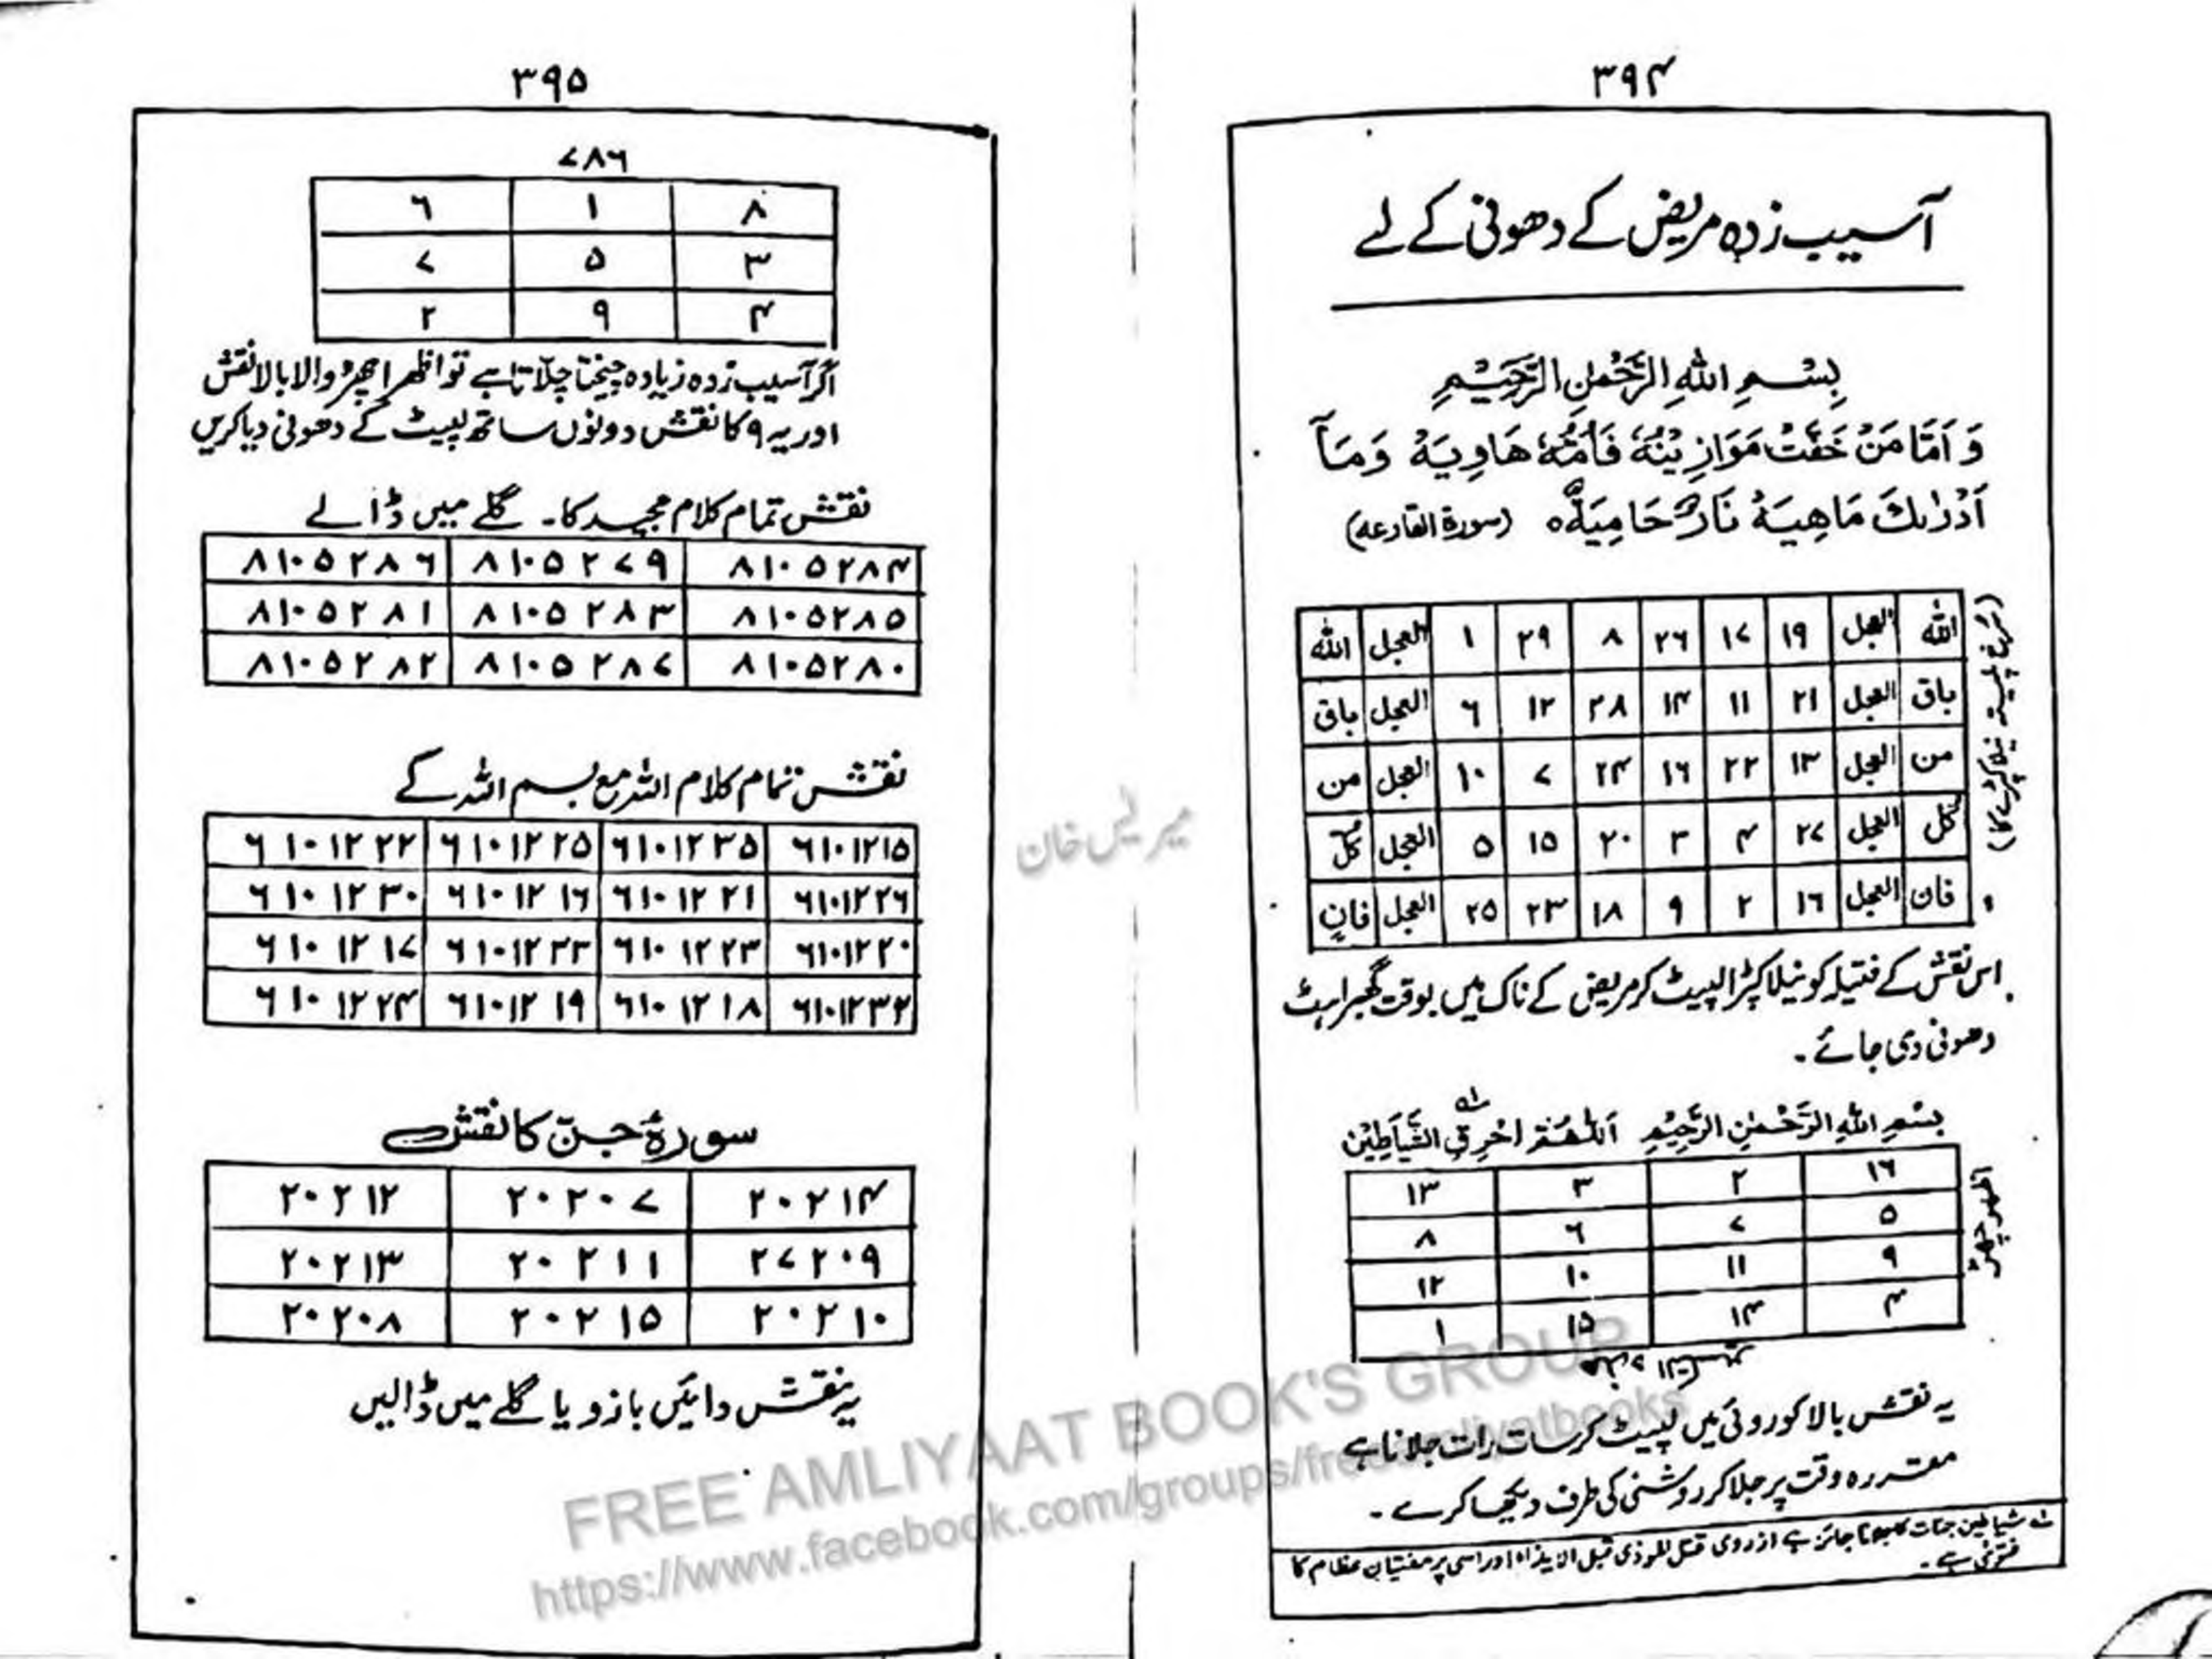 ۳۹۴
آسیب زدہ مریض کے دھونی کے لے
بِسْمِ اللهِ الرَّحْمٰنِ الرَّحِيْمِ
وَ اَمَّا مَنْ خَفَّتْ مَوَازِيْنُهٗ فَاُمُّهٗ هَاوِيَهْ وَمَآ
اَدْرٰىكَ مَاهِيَهْ نَارٌ حَامِيَةٌ (سورۃ القارعہ)
الله العجل ۱۹ ۱۷ ۲۶ ۸ ۲۹ ۱ العجل الله
باق العجل ۲۱ ۱۱ ۱۴ ۲۸ ۱۲ ۶ العجل باق
من العجل ۱۳ ۲۲ ۱۶ ۲۴ ۷ ۱۰ العجل من
كل العجل ۲۷ ۴ ۳ ۲۰ ۱۵ ۵ العجل كل
فان العجل ۱۶ ۲ ۹ ۱۸ ۲۳ ۲۵ العجل فان
اس نقش کے فتیلہ کو نیلا کپڑا لپیٹ کر مریض کے ناک میں بوقت گھبراہٹ
دھونی دی جائے۔
بِسْمِ اللهِ الرَّحْمٰنِ الرَّحِيْمِ اَللّٰهُمَّ احْرِقِ الشَّيَاطِيْنَ
۱۶ ۲ ۳ ۱۳
۵ ۷ ۶ ۸
۹ ۱۱ ۱۰ ۱۲
۴ ۱۴ ۱۵ ۱
یہ نقش بالا کو روئی میں لپیٹ کر سات رات جلانا ہے
مقررہ وقت پر جلا کر روشنی کی طرف دیکھا کرے۔
شیاطین جنات کا جلانا جائز ہے از روی قتل الموذی قبل الایذاء اور اسی پر مفتیان عظام کا
فتویٰ ہے۔
۳۹۵
۷۸۶
۸ ۱ ۶
۳ ۵ ۷
۴ ۹ ۲
اگر آسیب زدہ زیادہ چیختا چلاتا ہے تو اظہر اجھڑ والا بالا نقش
اور یہ ۹ کا نقش دونوں ساتھ لپیٹ کے دھونی دیا کریں
نقش تمام کلام مجید کا۔ گلے میں ڈالے
۸۱۰۵۲۸۴ ۸۱۰۵۲۷۹ ۸۱۰۵۲۸۶
۸۱۰۵۲۸۵ ۸۱۰۵۲۸۳ ۸۱۰۵۲۸۱
۸۱۰۵۲۸۰ ۸۱۰۵۲۸۷ ۸۱۰۵۲۸۲
نقش تمام کلام اللہ مع بسم اللہ کے
۶۱۰۱۲۱۵ ۶۱۰۱۲۳۵ ۶۱۰۱۲۲۵ ۶۱۰۱۲۲۲
۶۱۰۱۲۲۶ ۶۱۰۱۲۲۱ ۶۱۰۱۲۱۶ ۶۱۰۱۲۳۰
۶۱۰۱۲۲۰ ۶۱۰۱۲۲۳ ۶۱۰۱۲۳۳ ۶۱۰۱۲۱۷
۶۱۰۱۲۳۲ ۶۱۰۱۲۱۸ ۶۱۰۱۲۱۹ ۶۱۰۱۲۲۴
سورۂ جن کا نقش
۲۰۲۱۴ ۲۰۲۰۷ ۲۰۲۱۲
۲۷۲۰۹ ۲۰۲۱۱ ۲۰۲۱۳
۲۰۲۱۰ ۲۰۲۱۵ ۲۰۲۰۸
یہ نقش دائیں بازو یا گلے میں ڈالیں
خان
FREE AMLIYAAT BOOK'S GROUP
https://www.facebook.com/groups/freeamliyatbooks